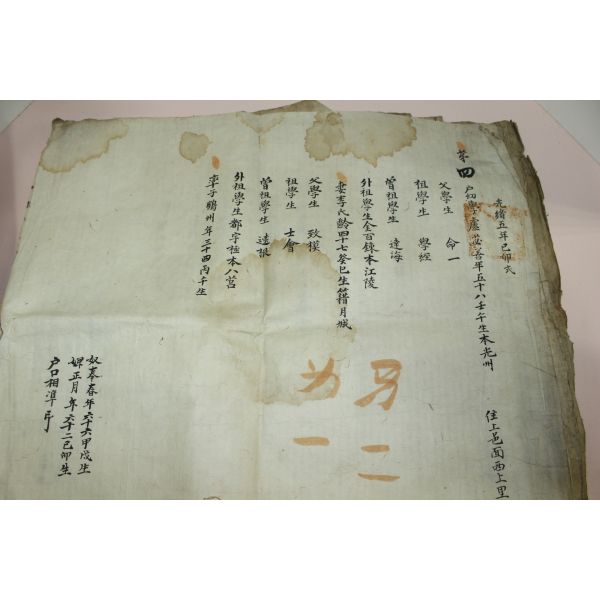 光緖五年己卯式
住上邑面西上里
第四
戶幼學盧 善年五十八壬午生本光州
父學生 命一
祖學生 學經
曾祖學生 達海
外祖學生金百鍊本江陵
妻李氏齡四十七癸巳生籍月城
父學生 致模
祖學生 士會
曾祖學生 達根
外祖學生都宇 本八莒
率子鵬州年三十四丙午生
奴奉春年六十六甲戌生
婢正月年六十二己卯生
戶口相準印
男二
女一